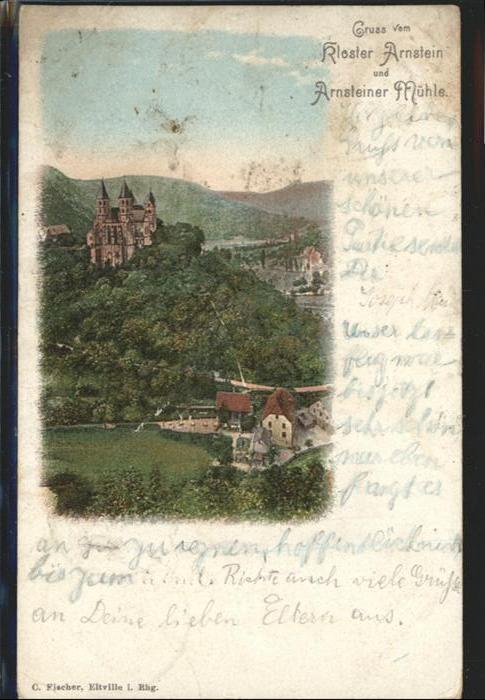 Gruss vom
Kloster Arnstein
und
Arnsteiner Mühle.
Gruss von
unserer
schönen
sendet
Dir
Joseph
Unser
war
bis jetzt
sehr schön
nur eben
fangt es
an zu regnen, hoffentlich nicht
bis zum Richte auch viele Grüße
an Deine lieben Eltern aus.
C. Fischer, Eltville i. Rhg.